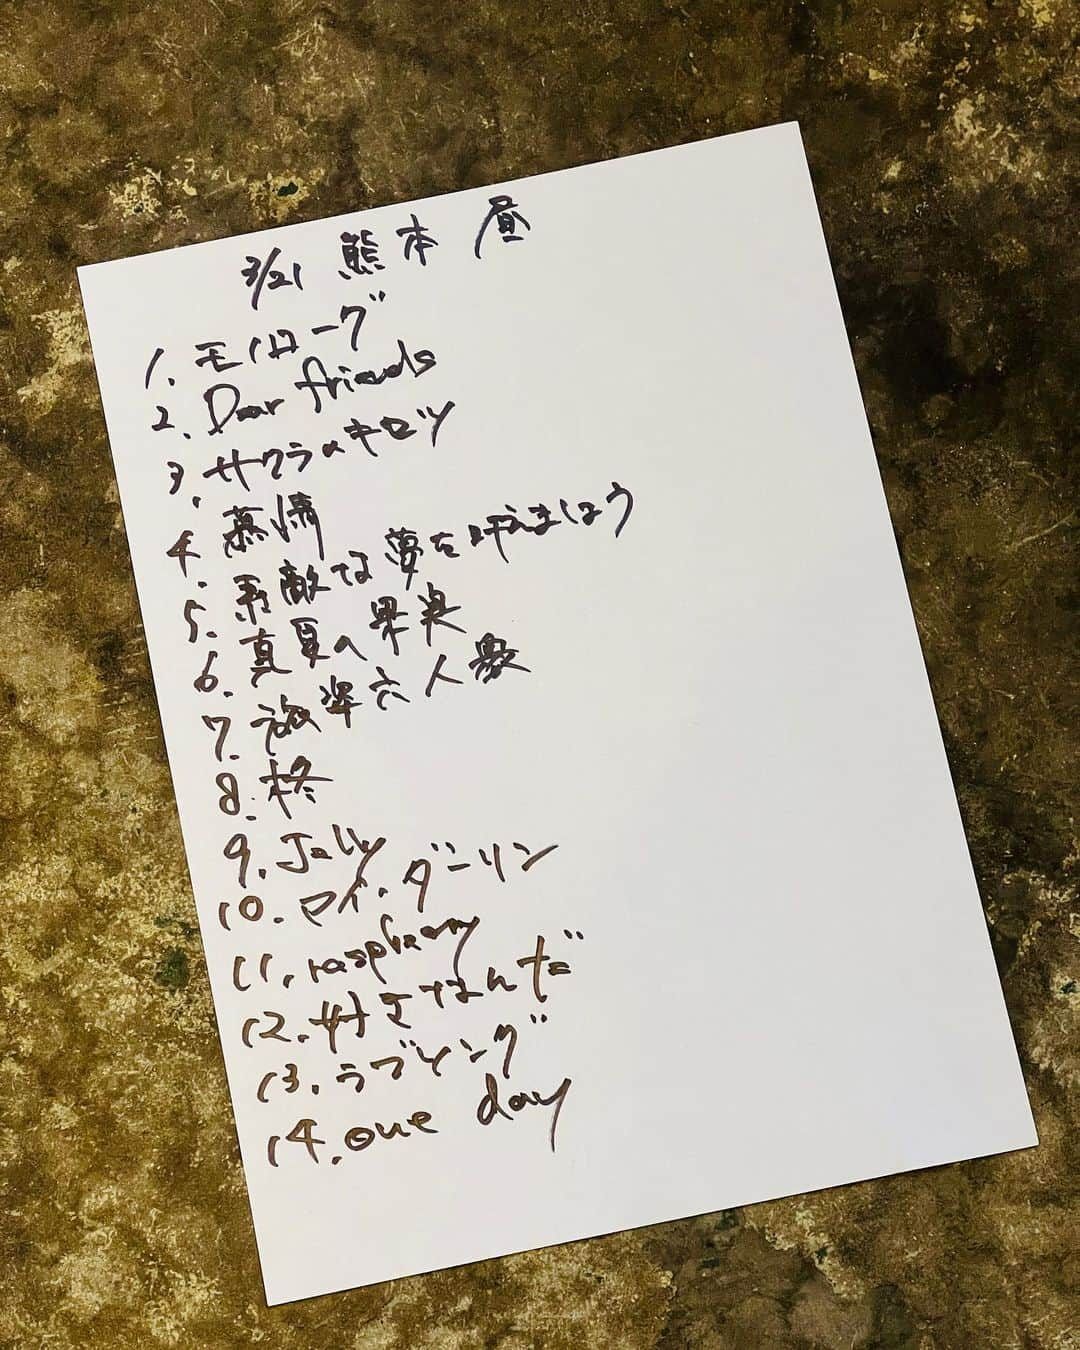 3/21 熊本 昼
1. モノローグ
2. Dear friends
3. サクラ的キセツ
4. 慕情
5. 素敵な夢を叶えましょう
6. 真夏の果実
7. 旅姿六人衆
8. 柊
9. Jelly
10. マイ・ダーリン
11. raspberry
12. 好きなんだ
13. ラブソング
14. one day